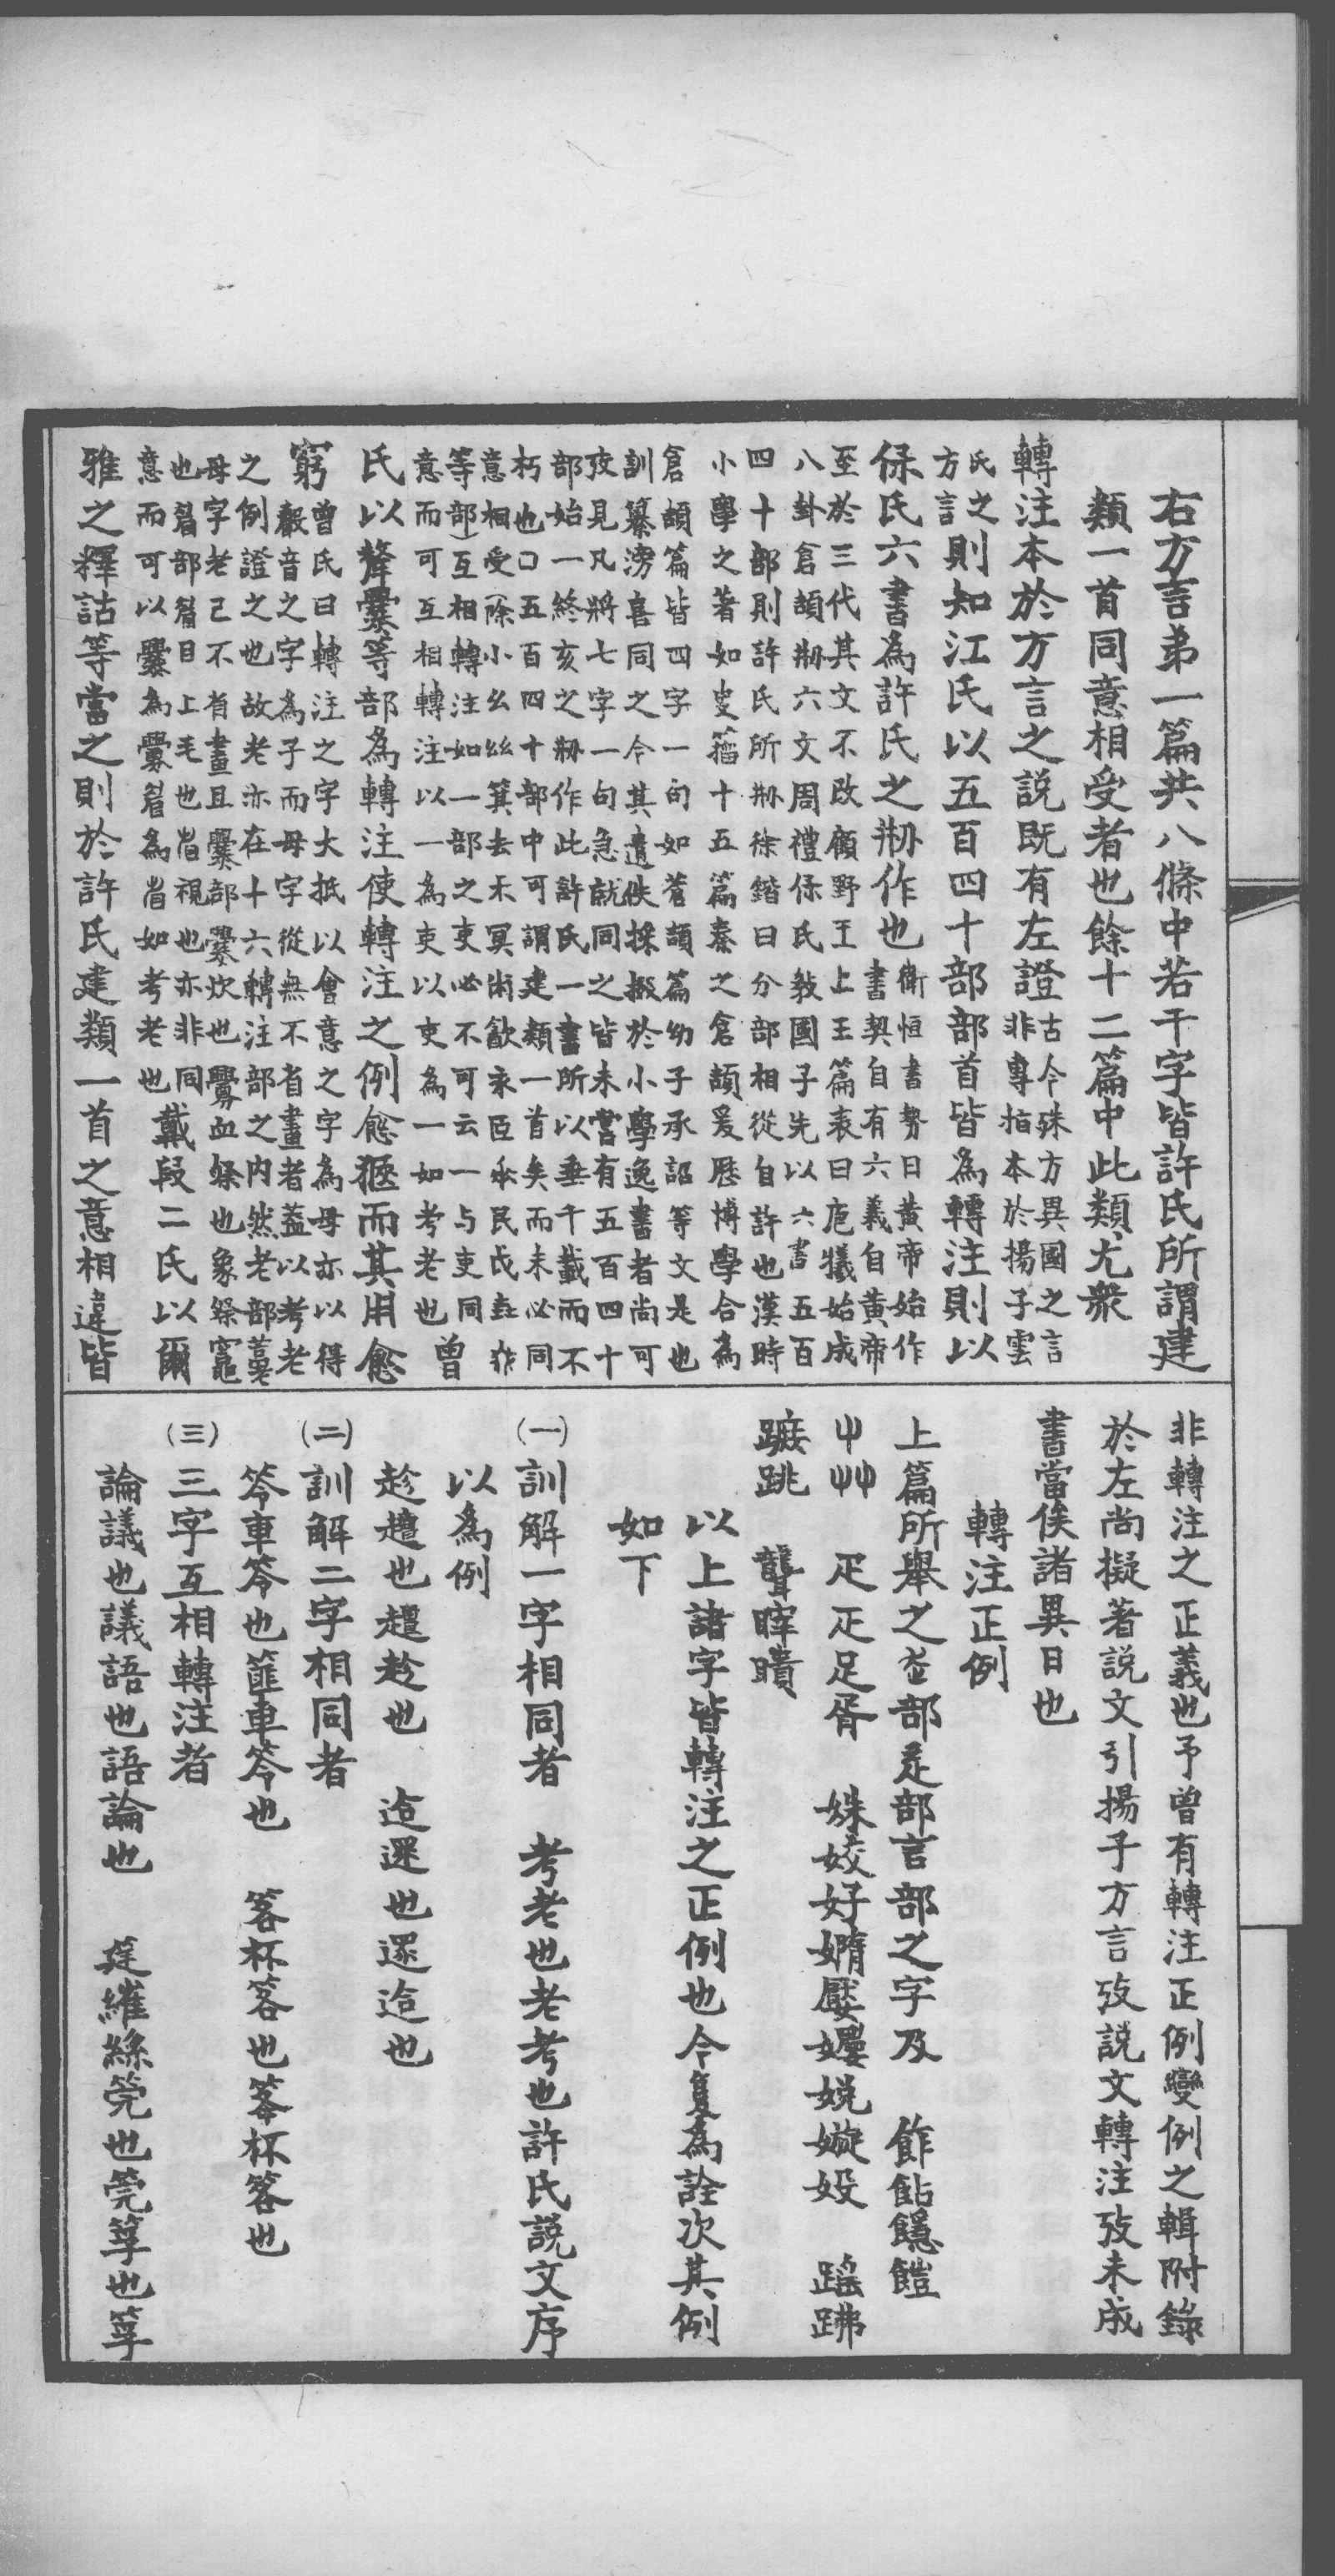 右方言弟一篇共八條中若干字皆許氏所謂建
類一首同意相受者也餘十二篇中此類尤衆
轉注本於方言之説既有左證古今殊方異國之言
非專指本於揚子雲
氏之
方言則知江氏以五百四十部部首皆為轉注則以
保氏六書為許氏之剏作也衛恒書勢曰黃帝始作
書契自有六義自黃帝
至於三代其文不改顧野王上玉篇表曰庖犧始成
八卦倉頡剏六文周禮保氏敎國子先以六書五百
四十部則許氏所剏徐鍇曰分部相從自許也漢時
小學之著如史籀十五篇秦之倉頡爰歷博學合為
倉頡篇皆四字一句如蒼頡篇幼子承詔等文是也
訓纂滂喜同之今其遺佚採掇於小學逸書者尚可
攷見凡將七字一句急就同之皆未嘗有五百四十
部始一終亥之剏作此許氏一書所以垂千載而不
朽也口五百四十部中可謂建類一首矣而未必同
意相受除小幺絲箕去禾冥㡀歙永臣𠂢民戉壵
等部互相轉注如一部之吏必不可云一与吏同
意而可互相轉注以一為吏以吏為一如考老也曾
氏以犛爨等部為轉注使轉注之例愈狹而其用愈
窮曾氏曰轉注之字大抵以會意之字為母亦以得
聲音之字為子而母字從無不省畫者蓋以考老
之例證之也故老亦在十六轉注部之内然老部
母字老已不省畫且爨部爨炊也釁血祭也象祭竈
也眉部眉目上毛也省視也亦非同
意而可以爨為釁眉為省如考老也戴段二氏以爾
雅之釋詁等當之則於許氏建類一首之意相違皆
非轉注之正義也予曾有轉注正例變例之輯附錄
於左尚擬著説文引揚子方言攷説文轉注攷未成
書當俟諸異日也
轉注正例
上篇所舉之部辵部言部之字及　飵飵
屮艸　疋疋足胥　姝姣好嫷　蹈跳
跳　聾聵
以上諸字皆轉注之正例也今隻為詮次其例
如下
（一）訓解一字相同者　考老也老考也許氏説文序
以為例
趁趲也趲趁也　迨遝也遝迨也
（二）訓解二字相同者
笭車笭也篚車笭也　答杯答也筝杯答也
（三）三字互相轉注者
論議也議語也語論也　筳繀絲筦也筦筟也筟